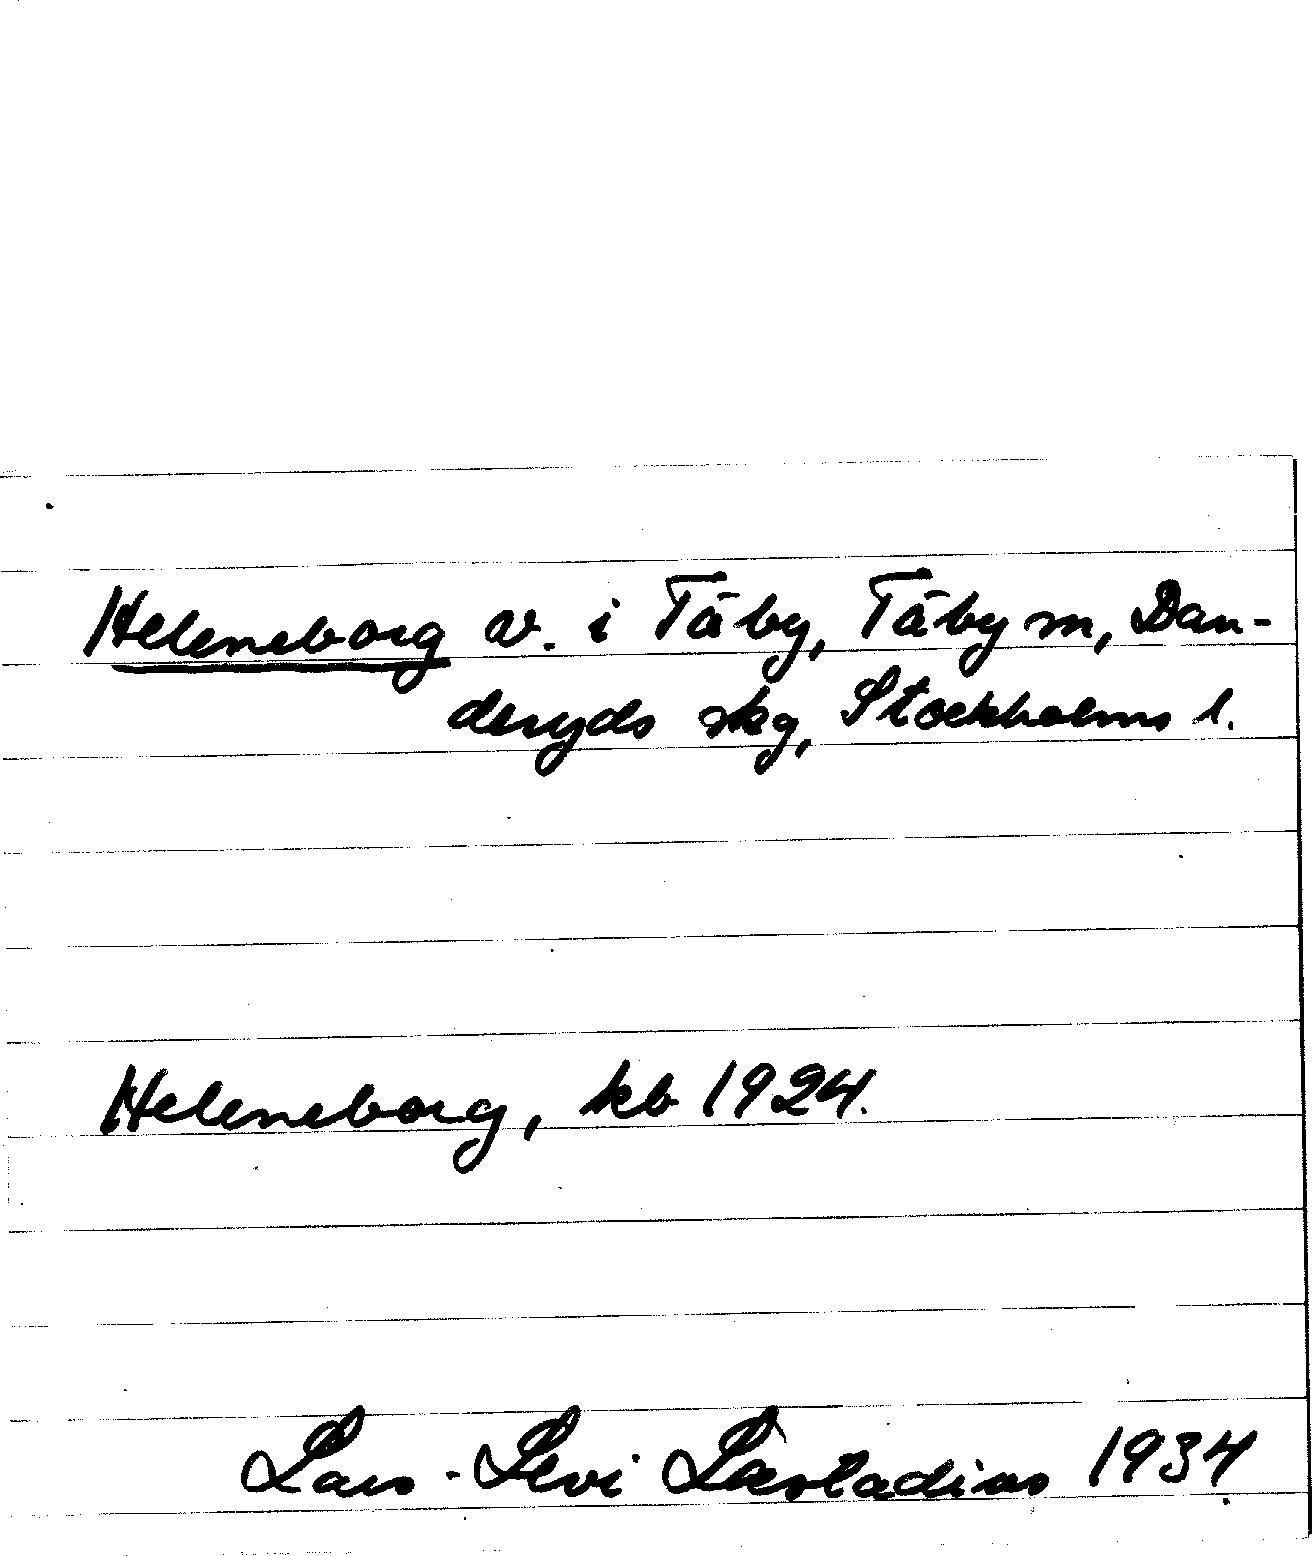 Heleneborg av. i Täby, Täby sn, Dan-
deryds skg, Stockholms l.
Heleneborg, kb 1924.
Lars-Levi Læstadius 1934